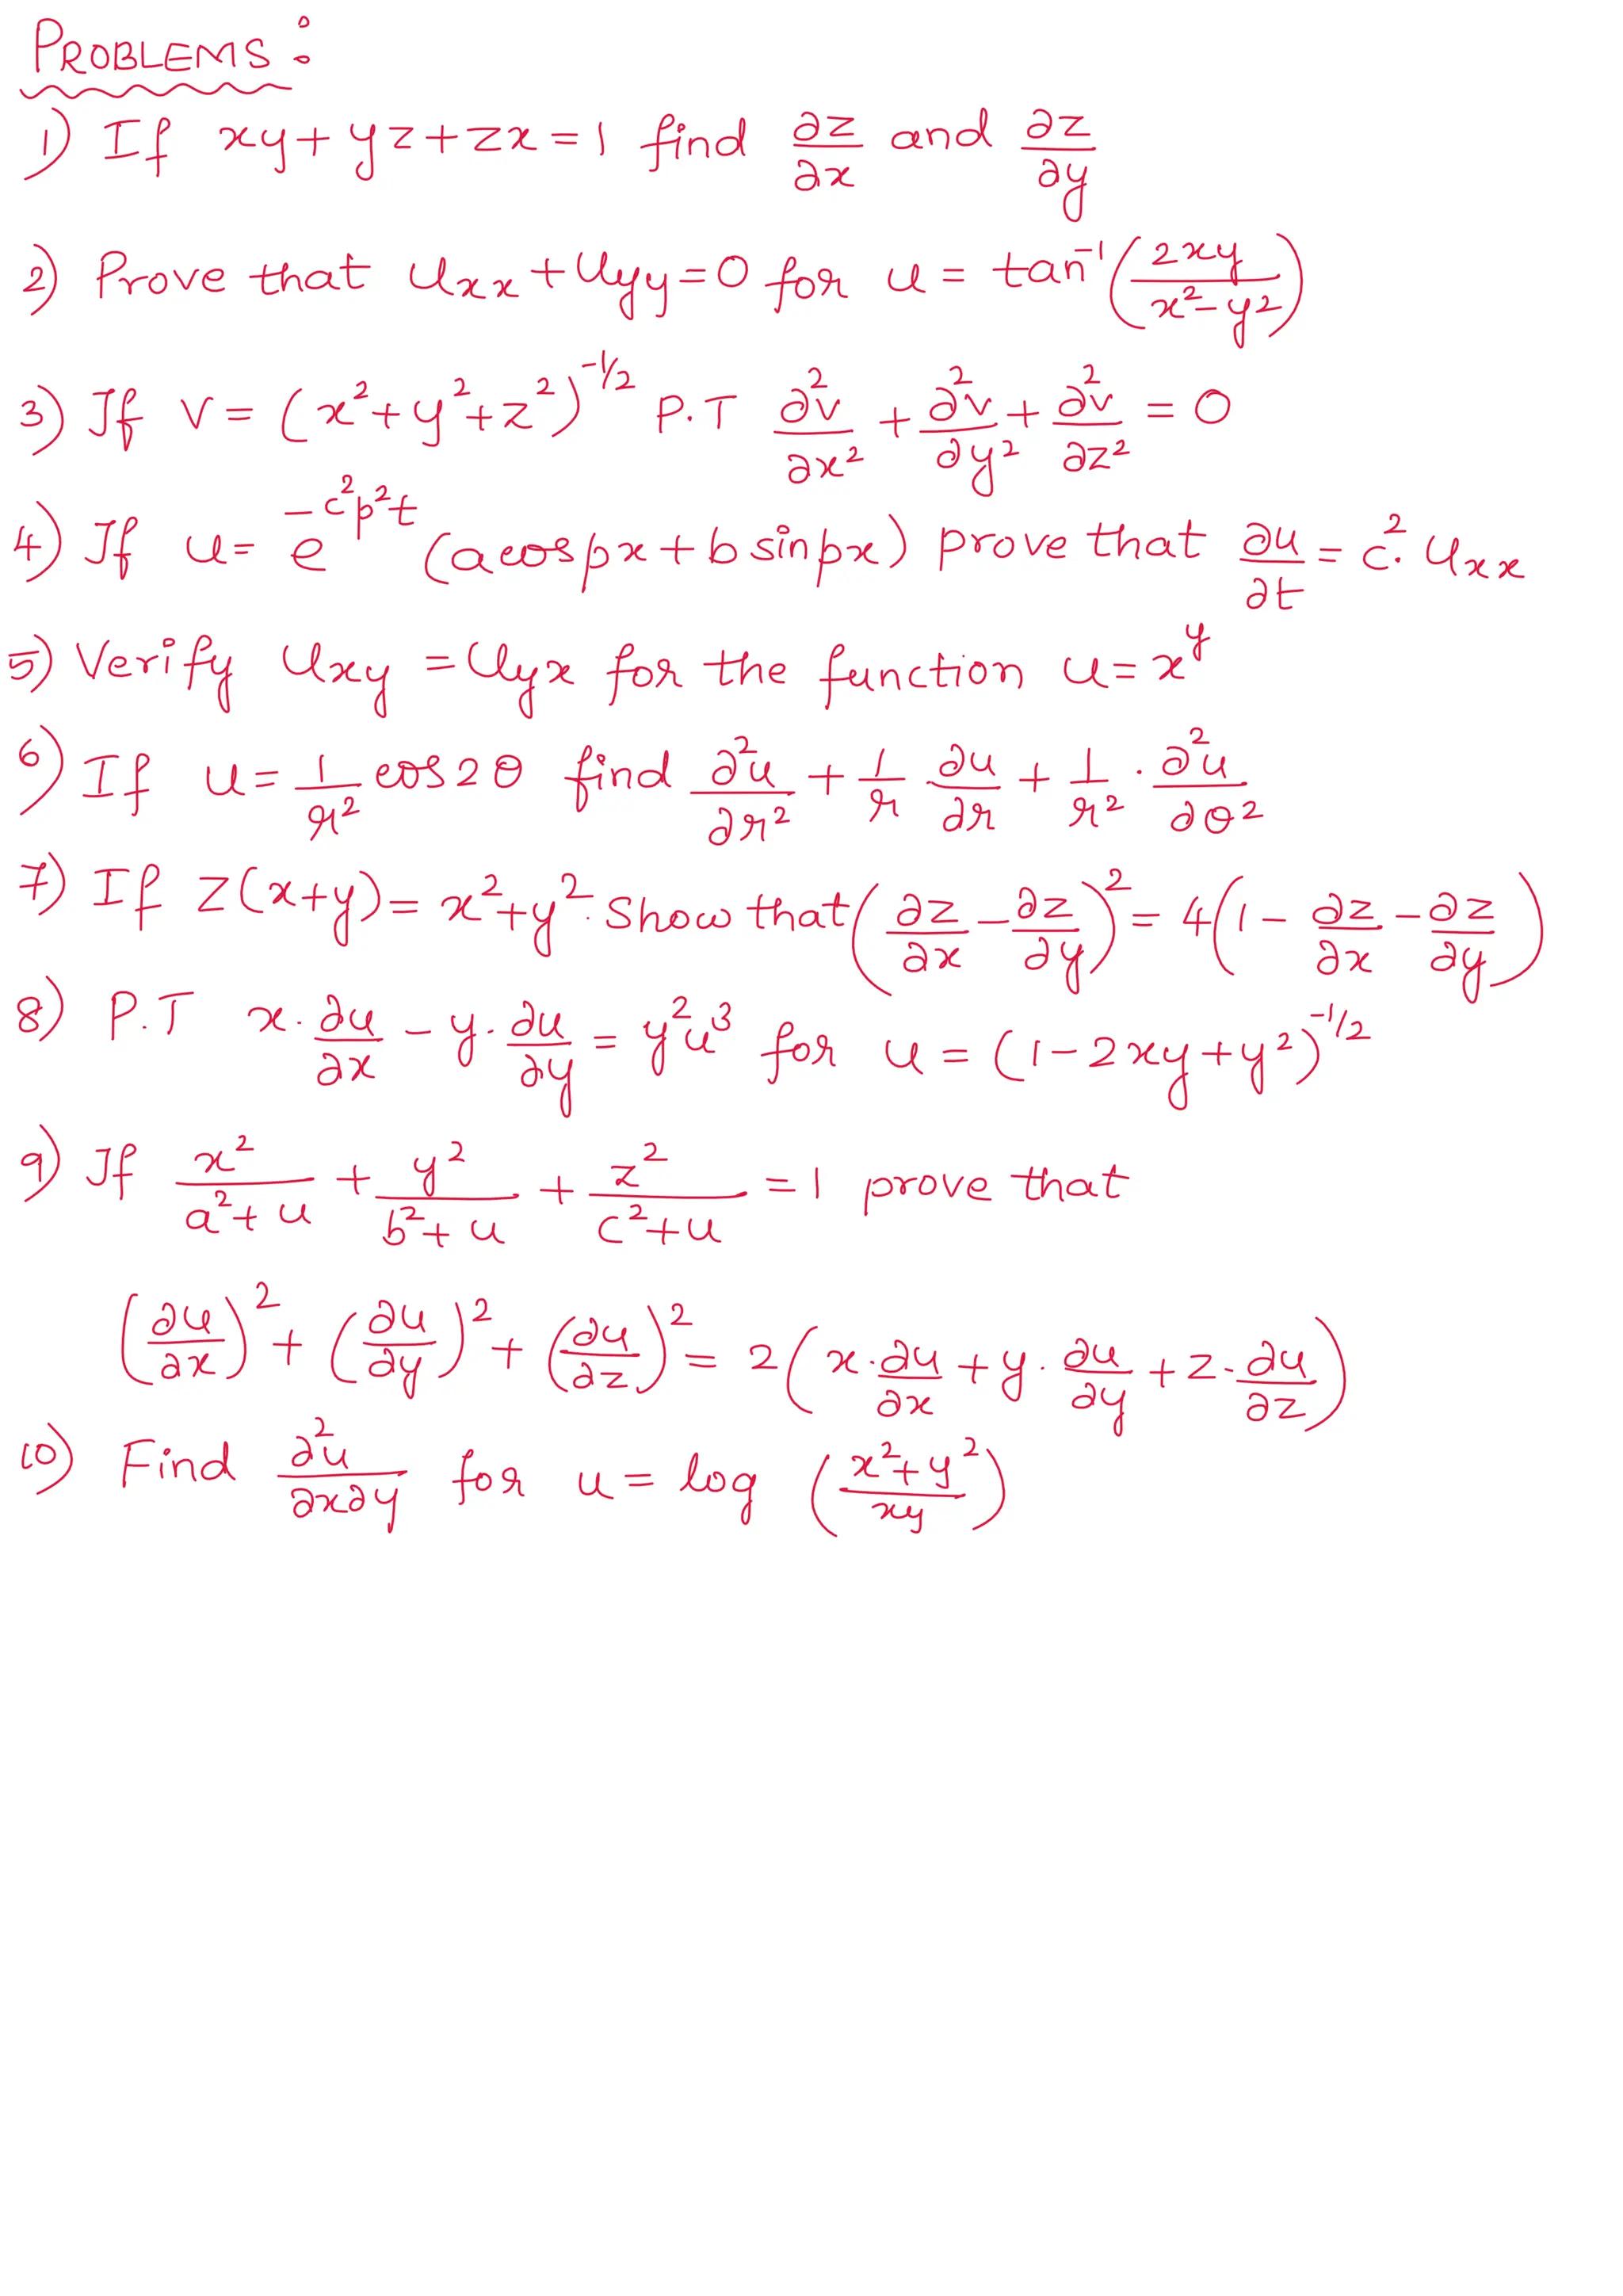 PROBLEMS :
1) If xy + yz + zx = 1 find ∂z/∂x and ∂z/∂y
2) Prove that u_xx + u_yy = 0 for u = tan⁻¹(2xy/(x² − y²))
3) If v = (x² + y² + z²)^(-1/2) P.T ∂²v/∂x² + ∂²v/∂y² + ∂²v/∂z² = 0
4) If u = e^(−c²p²t) (a cos px + b sin px) prove that ∂u/∂t = c². u_xx
5) Verify u_xy = u_yx for the function u = x^y
6) If u = 1/r² cos2θ find ∂²u/∂r² + 1/r ∂u/∂r + 1/r² · ∂²u/∂θ²
7) If z(x+y) = x² + y². Show that (∂z/∂x − ∂z/∂y)² = 4(1 − ∂z/∂x − ∂z/∂y)
8) P.T x · ∂u/∂x − y · ∂u/∂y = y²u³ for u = (1 − 2xy + y²)^(-1/2)
9) If x²/(a² + u) + y²/(b² + u) + z²/(c² + u) = 1 prove that
(∂u/∂x)² + (∂u/∂y)² + (∂u/∂z)² = 2(x · ∂u/∂x + y · ∂u/∂y + z · ∂u/∂z)
10) Find ∂²u/∂x∂y for u = log ((x² + y²)/xy)